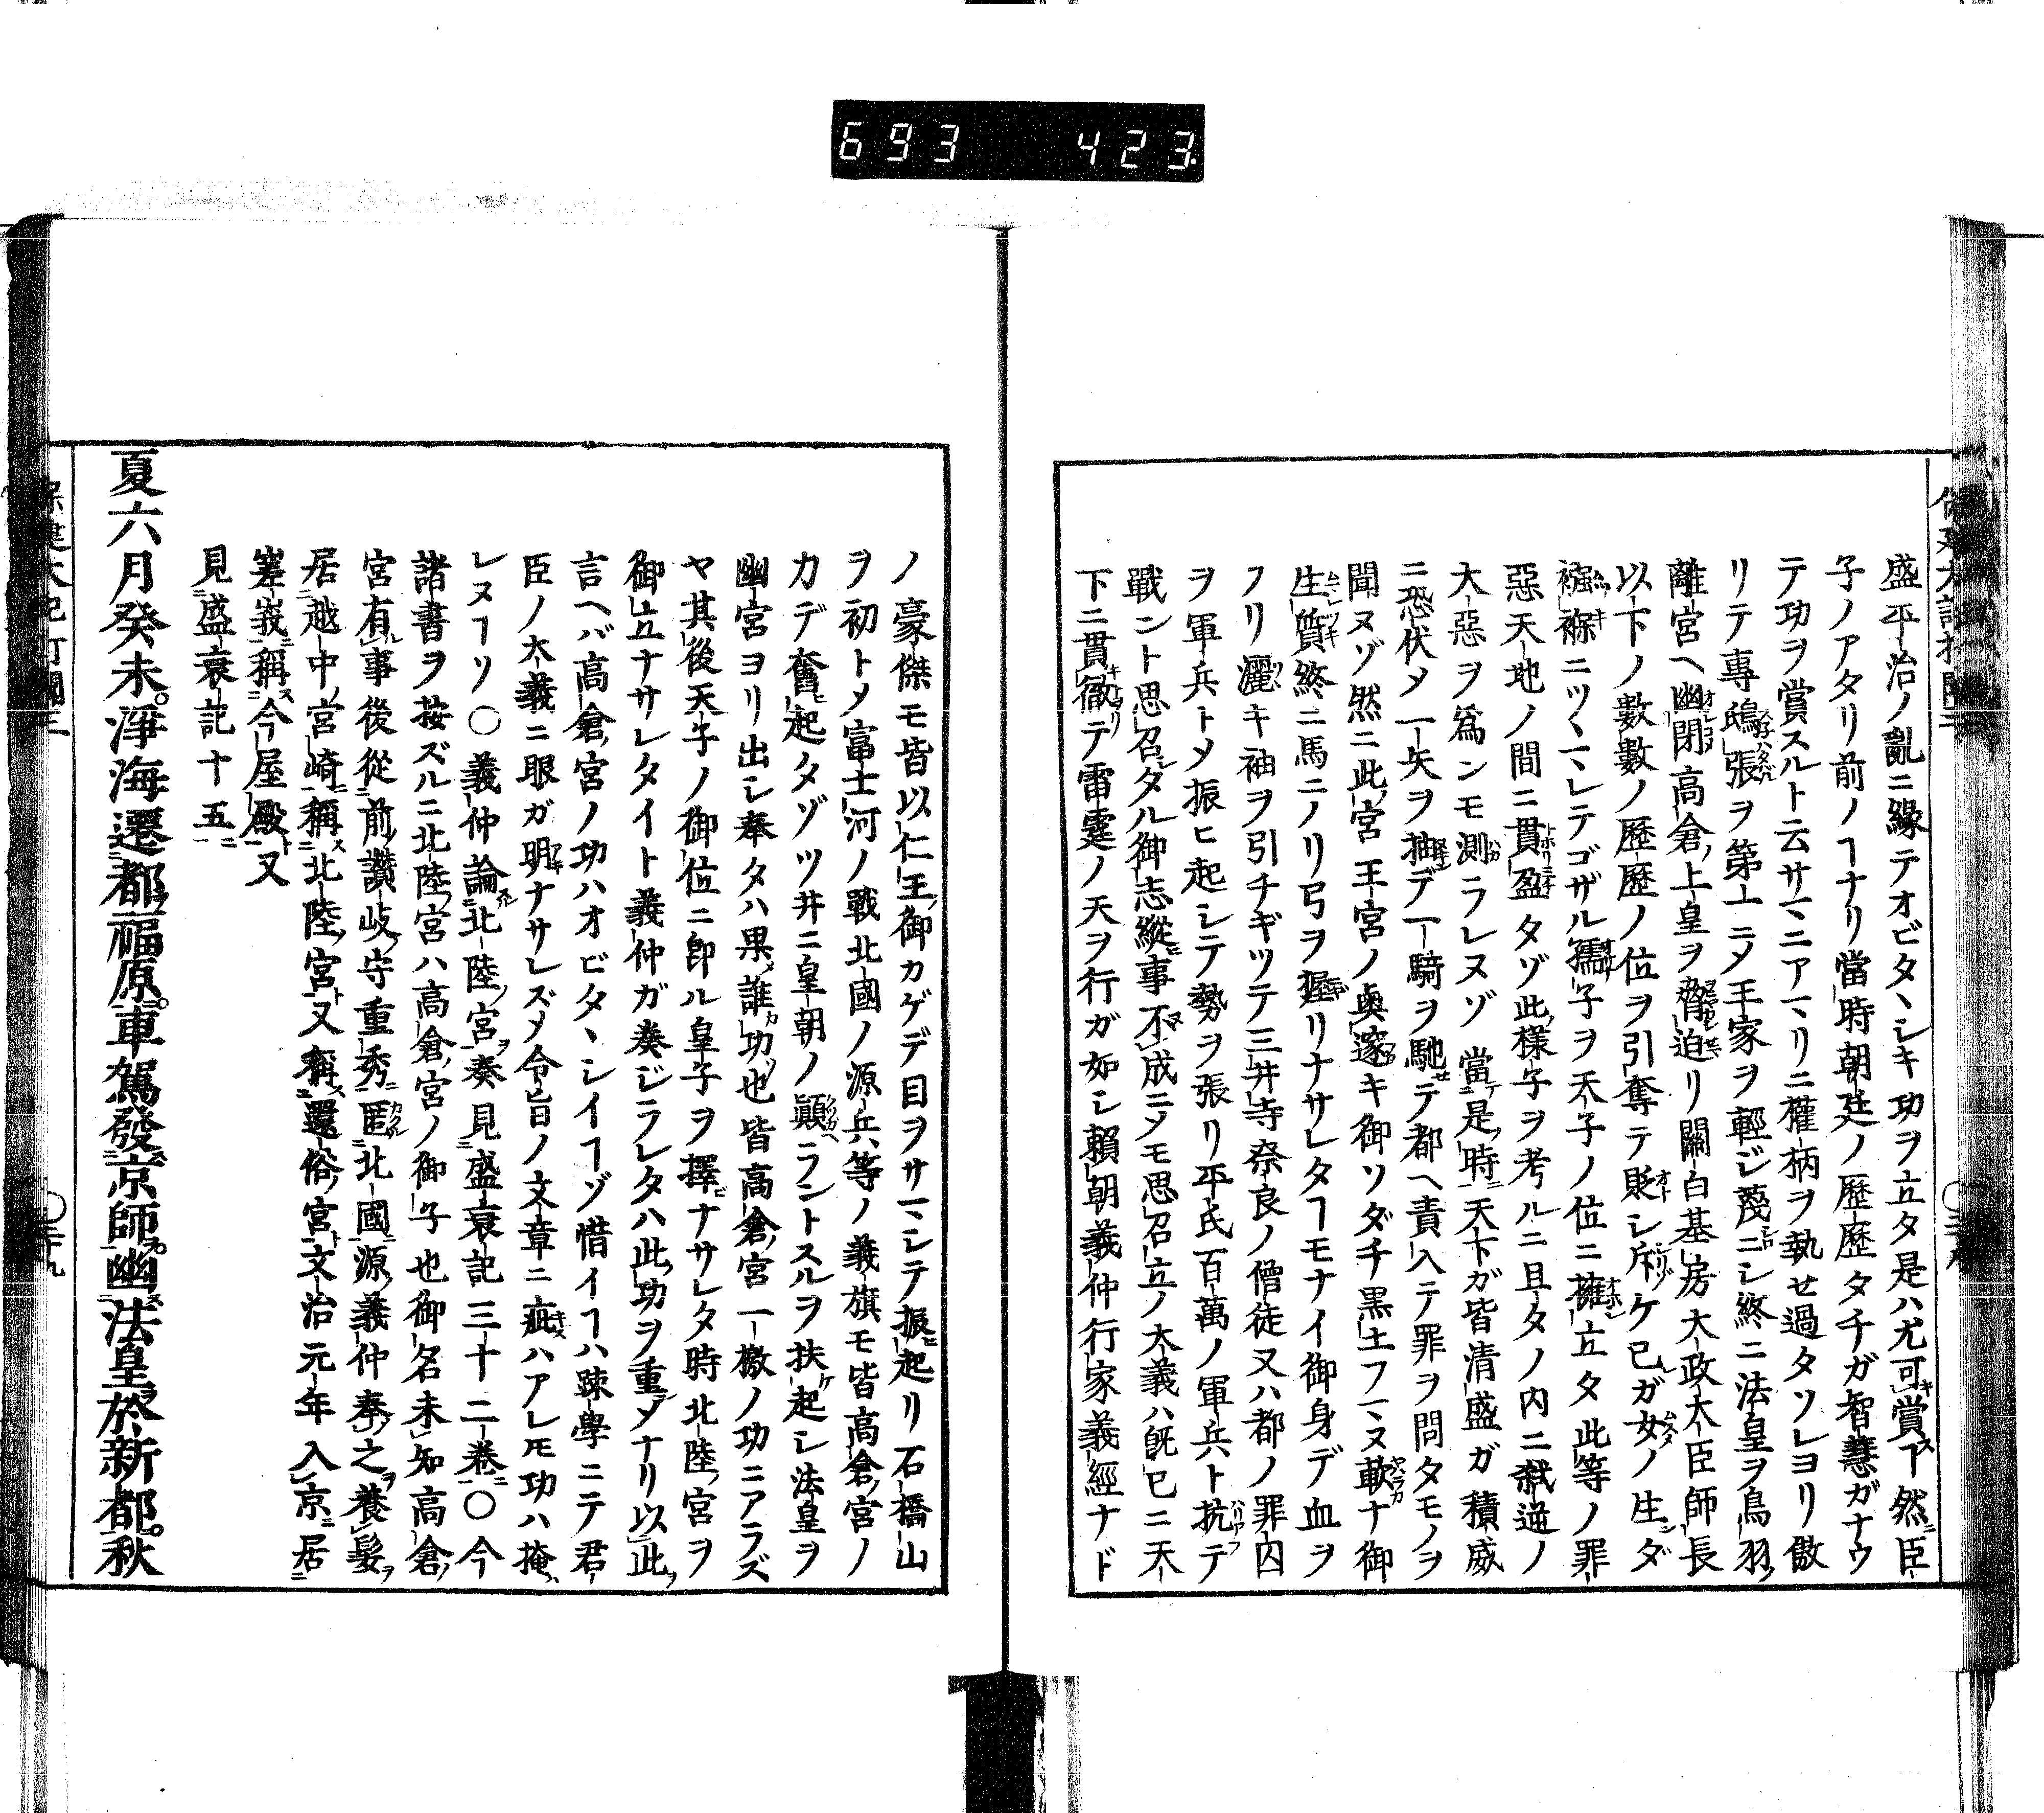 693 423
盛平治ノ亂ニ緣テオビタヽシキ功ヲ立タ是ハ尤可賞ヿ然臣
子ノアタリ前ノヿナリ當時朝廷ノ歷歷タチガ智慧ガナウ
テ功ヲ賞スルト云サマニアマリニ權柄ヲ執セ過タソレヨリ傲
リテ專鴟張ヲ第一ニメ王家ヲ輕ジ蔑ニシ終ニ法皇ヲ鳥羽ノ
離宮ヘ幽閉高倉上皇ヲ脅迫リ關白基房大政大臣師長
以下ノ數數ノ歷歷ノ位ヲ引奪テ貶シ斥ケ已ガ女ノ生ダ
襁褓ニツヽマレテゴザル孺子ヲ天子ノ位ニ擁立タ此等ノ罪
惡天地ノ間ニ貫盈タゾ此樣子ヲ考ルニ旦タノ内ニ弒逆ノ
大惡ヲ爲ンモ測ラレヌゾ當是時天下ガ皆清盛ガ積威
ニ恐伏メ一矢ヲ抽デ一騎ヲ馳テ都ヘ責入テ罪ヲ問タモノヲ
聞ヌゾ然ニ此宮王宮ノ奥邃キ御ソダチ黑土フマヌ軟ナ御
生質終ニ馬ニノリ弓ヲ握リナサレタヿモナイ御身デ血ヲ
フリ灑キ袖ヲ引チギツテ三井寺奈良ノ僧徒又ハ都ノ罪囚
ヲ軍兵トメ振ヒ起シテ勢ヲ張リ平氏百萬ノ軍兵ト抗テ
戰ント思召タル御志縱事不成ニメモ思召立ノ大義ハ既已ニ天
下ニ貫徹テ雷霆ノ天ヲ行ガ如シ賴朝義仲行家義經ナド
ノ豪傑モ皆以仁王御カゲデ目ヲサマシテ振起リ石橋山
ヲ初トメ富士河ノ戰北國ノ源兵等ノ義旗モ皆高倉宮ノ
カデ奮起タゾツ井ニ皇朝ノ顚ラントスルヲ扶起シ法皇ヲ
幽宮ヨリ出シ奉タハ果誰功也皆高倉宮一檄ノ功ニアラズ
ヤ其後天子ノ御位ニ卽ル皇子ヲ擇ナサレタ時北陸宮ヲ
御立ナサレタイト義仲ガ奏ジラレタハ此功ヲ重メナリ以此
言ヘバ高倉宮ノ功ハオビタヽシイヿゾ惜イヿハ疎學ニテ君
臣ノ大義ニ眼ガ明ナサレズメ令旨ノ文章ニ疵ハアレ𪜈功ハ掩
レヌヿソ〇義仲論北陸宮奏見盛衰記三十二卷〇今
諸書ヲ按ズルニ北陸宮ハ高倉宮ノ御子也御名未知高倉
宮有事後從前讚岐守重秀匿北國源義仲奉之養髮
居越中宮崎稱北陸宮又稱還俗宮文治元年入京居
嵯峩稱今屋殿又
見盛衰記十五
夏六月癸未。淨海遷都福原。車駕發京師幽法皇於新都。秋